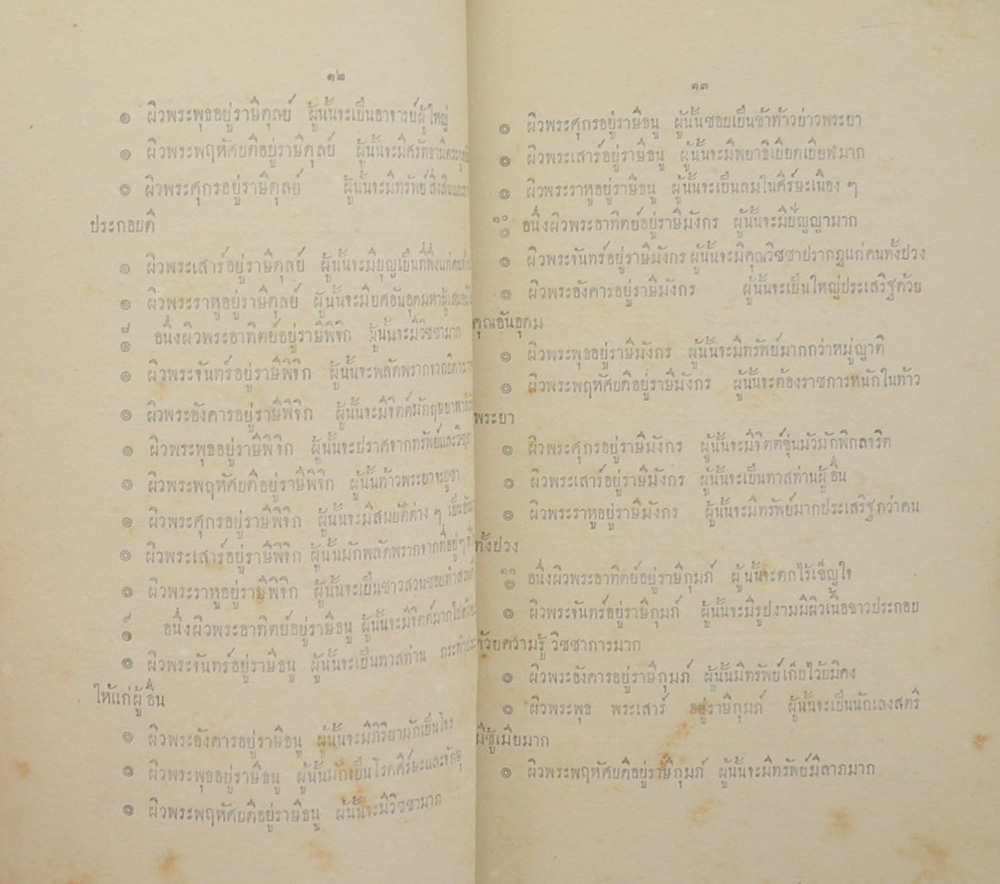 ๑๒
๏ ผิวพระพุธอยู่ราษิตุลย์ ผู้นั้นจะเปนอาจารย์ผู้ใหญ่
๏ ผิวพระพฤหัศบดีอยู่ราษิตุลย์ ผู้นั้นจะมีศรัทธา
๏ ผิวพระศุกรอยู่ราษิตุลย์ ผู้นั้นจะมีทรัพย์สิ่งสิน
ประกอบดี
๏ ผิวพระเสาร์อยู่ราษิตุลย์ ผู้นั้นจะมีบุญเปนที่พึ่งแก่คน
๏ ผิวพระราหูอยู่ราษิตุลย์ ผู้นั้นจะมียศอันอุดม
๘
๏ อนึ่งผิวพระอาทิตย์อยู่ราษีพิจิก ผู้นั้นจะมีวิชชามาก
๏ ผิวพระจันทร์อยู่ราษีพิจิก ผู้นั้นจะพลัดพรากจาก
๏ ผิวพระอังคารอยู่ราษีพิจิก ผู้นั้นจะมีจิตต์
๏ ผิวพระพุธอยู่ราษีพิจิก ผู้นั้นจะปราศจากทรัพย์และ
๏ ผิวพระพฤหัศบดีอยู่ราษีพิจิก ผู้นั้นท้าวพระยาจะบูชา
๏ ผิวพระศุกรอยู่ราษีพิจิก ผู้นั้นจะมีสมบัติต่าง ๆ
๏ ผิวพระเสาร์อยู่ราษีพิจิก ผู้นั้นมักพลัดพรากจากที่อยู่
๏ ผิวพระราหูอยู่ราษีพิจิก ผู้นั้นจะเปนชาวสวนชอบทำ
๙
๏ อนึ่งผิวพระอาทิตย์อยู่ราษีธนู ผู้นั้นจะมีจิตต์มาก
๏ ผิวพระจันทร์อยู่ราษีธนู ผู้นั้นจะเปนทาสท่าน
ให้แก่ผู้อื่น
๏ ผิวพระอังคารอยู่ราษีธนู ผู้นั้นจะมีกิริยามักเปนโจร
๏ ผิวพระพุธอยู่ราษีธนู ผู้นั้นมักเปนโรคศีร์ษะและจักษุ
๏ ผิวพระพฤหัศบดีอยู่ราษีธนู ผู้นั้นจะมีวิชชามาก
๑๓
๏ ผิวพระศุกรอยู่ราษีธนู ผู้นั้นชอบเปนข้าท้าวบ่าวพระยา
๏ ผิวพระเสาร์อยู่ราษีธนู ผู้นั้นจะมีพยาธิเบียดเบียฬมาก
๏ ผิวพระราหูอยู่ราษีธนู ผู้นั้นจะเปนลมในศีร์ษะเนือง ๆ
๑๐
๏ อนึ่งผิวพระอาทิตย์อยู่ราษีมังกร ผู้นั้นจะมีปัญญามาก
๏ ผิวพระจันทร์อยู่ราษีมังกร ผู้นั้นจะมีคุณวิชชาปรากฎแก่คนทั้งปวง
๏ ผิวพระอังคารอยู่ราษีมังกร ผู้นั้นจะเปนใหญ่ประเสริฐด้วย
คุณอันอุดม
๏ ผิวพระพุธอยู่ราษีมังกร ผู้นั้นจะมีทรัพย์มากกว่าหมู่ญาติ
๏ ผิวพระพฤหัศบดีอยู่ราษีมังกร ผู้นั้นจะต้องราชการหนักในท้าว
พระยา
๏ ผิวพระศุกรอยู่ราษีมังกร ผู้นั้นจะมีจิตต์ขุ่นมัวมักพิกลจริต
๏ ผิวพระเสาร์อยู่ราษีมังกร ผู้นั้นจะเปนทาสท่านผู้อื่น
๏ ผิวพระราหูอยู่ราษีมังกร ผู้นั้นจะมีทรัพย์มากประเสริฐกว่าคน
ทั้งปวง
๑๑
๏ อนึ่งผิวพระอาทิตย์อยู่ราษีกุมภ์ ผู้นั้นจะตกไร้เข็ญใจ
๏ ผิวพระจันทร์อยู่ราษีกุมภ์ ผู้นั้นจะมีรูปงามมีผิวเนื้อขาวประกอบ
ด้วยความรู้ วิชชาการมาก
๏ ผิวพระอังคารอยู่ราษีกุมภ์ ผู้นั้นมีทรัพย์เก็บไว้บมิคง
๏ ผิวพระพุธ พระเสาร์ อยู่ราษีกุมภ์ ผู้นั้นจะเปนนักเลงสตรี
มีชู้เมียมาก
๏ ผิวพระพฤหัศบดีอยู่ราษีกุมภ์ ผู้นั้นจะมีทรัพย์มีลาภมาก